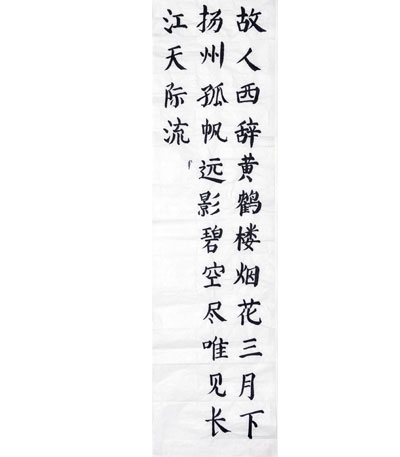 故人西辞黄鹤楼烟花三月下
扬州孤帆远影碧空尽唯见长
江天际流